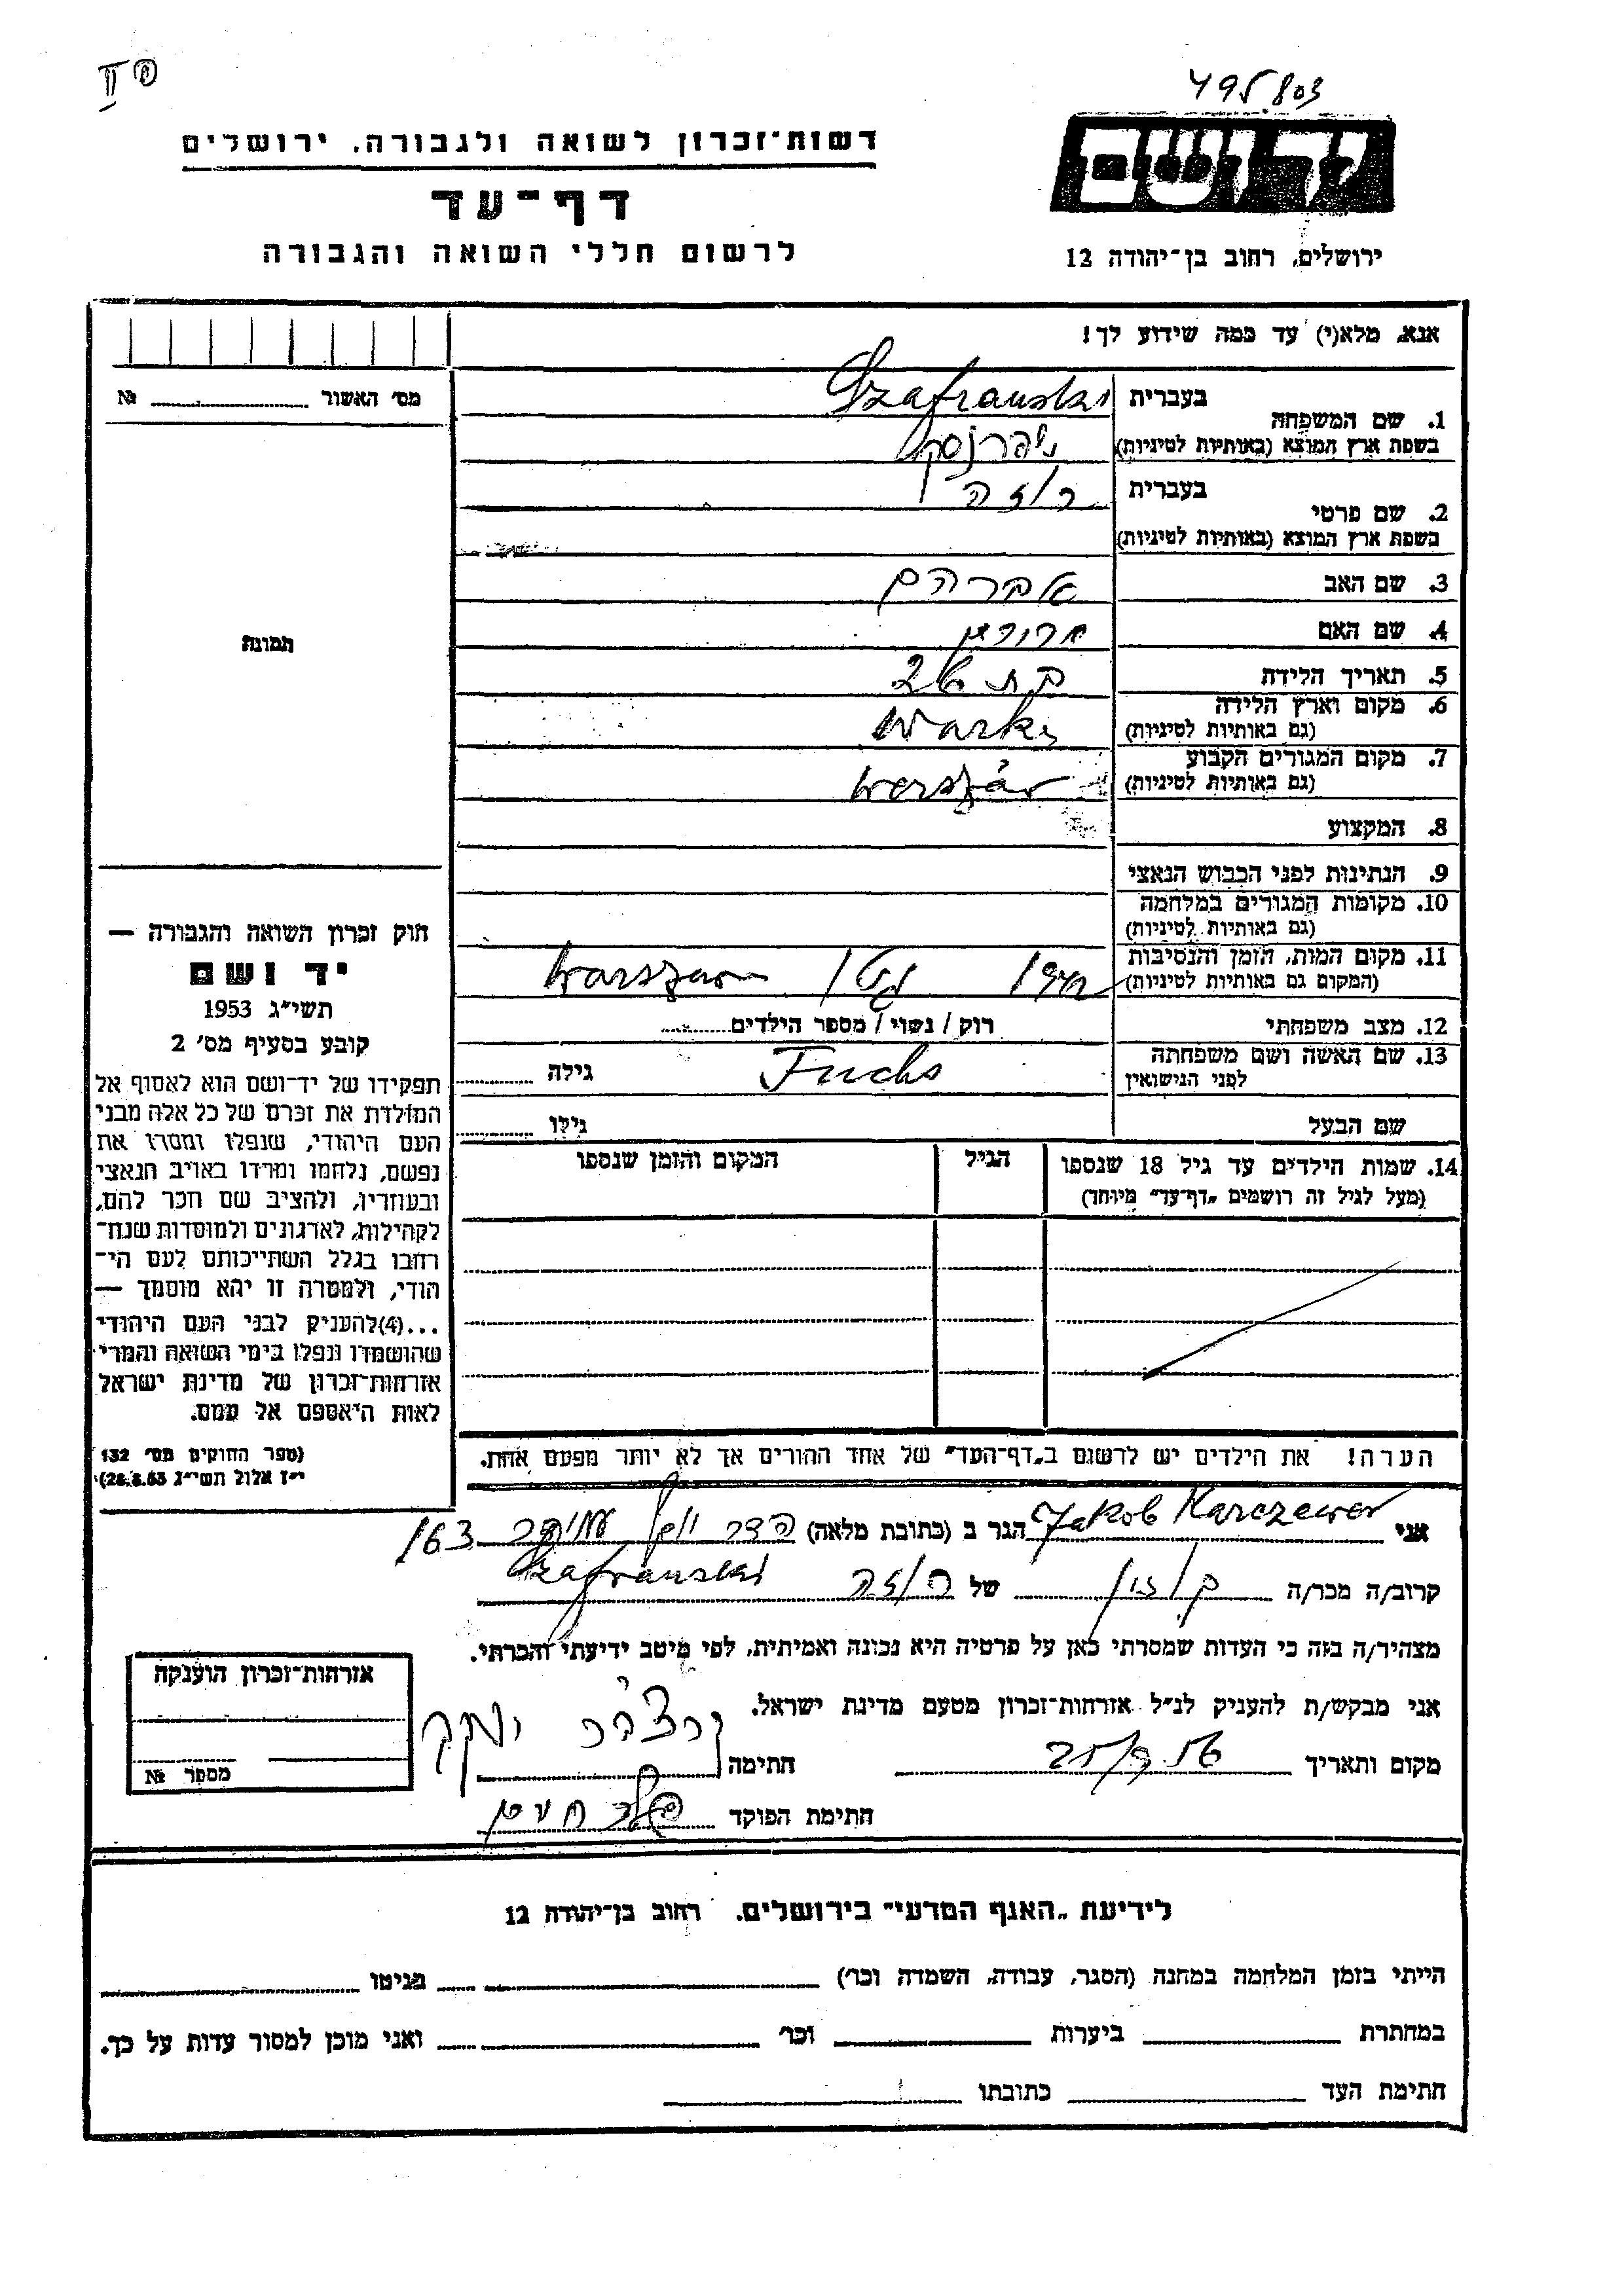 495.803
יד ושם
ירושלים, רחוב בן־יהודה 12
רשות־זכרון לשואה ולגבורה, ירושלים
דף־עד
לרשום חללי השואה והגבורה
אנא, מלא(י) עד כמה שידוע לך!
מס' האשור №
1. שם המשפחה בעברית Szafranski
בשפת ארץ המוצא (באותיות לטיניות)
2. שם פרטי בעברית רוזה
בשפת ארץ המוצא (באותיות לטיניות)
3. שם האב אברהם
4. שם האם
5. תאריך הלידה בת 26
6. מקום וארץ הלידה
(גם באותיות לטיניות)
7. מקום המגורים הקבוע
(גם באותיות לטיניות)
8. המקצוע
9. הנתינות לפני הכבוש הנאצי
10. מקומות המגורים במלחמה
(גם באותיות לטיניות)
11. מקום המות, הזמן והנסיבות
(המקום גם באותיות לטיניות) 1942 גטו Warszawa
12. מצב משפחתי רוק / נשוי / מספר הילדים
13. שם האשה ושם משפחתה
לפני הנישואין Fuchs גילה
שם הבעל גילו
14. שמות הילדים עד גיל 18 שנספו
(מעל לגיל זה רושמים "דף־עד" מיוחד)
הגיל
המקום והזמן שנספו
הערה! את הילדים יש לרשום ב"דף־העד" של אחד ההורים אך לא יותר מפעם אחת.
תמונה
חוק זכרון השואה והגבורה —
יד ושם
תשי"ג 1953
קובע בסעיף מס' 2
תפקידו של יד־ושם הוא לאסוף אל
המולדת את זכרם של כל אלה מבני
העם היהודי, שנפלו ומסרו את
נפשם, נלחמו ומרדו באויב הנאצי
ובעוזריו, ולהציב שם וזכר להם,
לקהילות, לארגונים ולמוסדות שנח־
רבו בגלל השתייכותם לעם הי־
הודי, ולמטרה זו יהא מוסמך —
...(4)להעניק לבני העם היהודי
שהושמדו ונפלו בימי השואה והמרי
אזרחות־זכרון של מדינת ישראל
לאות היאספם אל עמם.
(ספר החוקים מס' 132
י"ז אלול תשי"ג 28.8.53)
אני Jakob Karczewer הגר ב (כתובת מלאה) 163
קרוב/ה מכר/ה בן דוד של רוזה Szafranski
מצהיר/ה בזה כי העדות שמסרתי כאן על פרטיה היא נכונה ואמיתית, לפי מיטב ידיעתי והכרתי.
אני מבקש/ת להעניק לנ"ל אזרחות־זכרון מטעם מדינת ישראל.
מקום ותאריך 25/9.56 חתימה
חתימת הפוקד
אזרחות־זכרון הוענקה
מספר №
לידיעת "האגף המדעי" בירושלים, רחוב בן־יהודה 12
הייתי בזמן המלחמה במחנה (הסגר, עבודה, השמדה וכו') בגיטו
במחתרת ביערות וכו' ואני מוכן למסור עדות על כך.
חתימת העד כתובתו